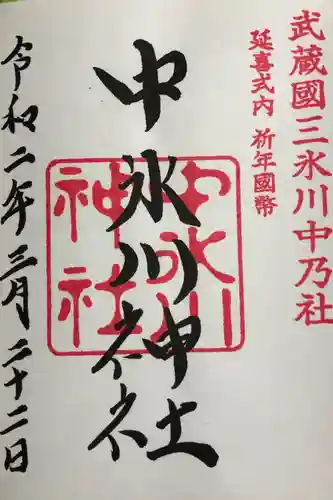 武蔵國三氷川中乃社
延喜式内 祈年國幣
中氷川神社
中氷川
神社
令和二年三月二十二日